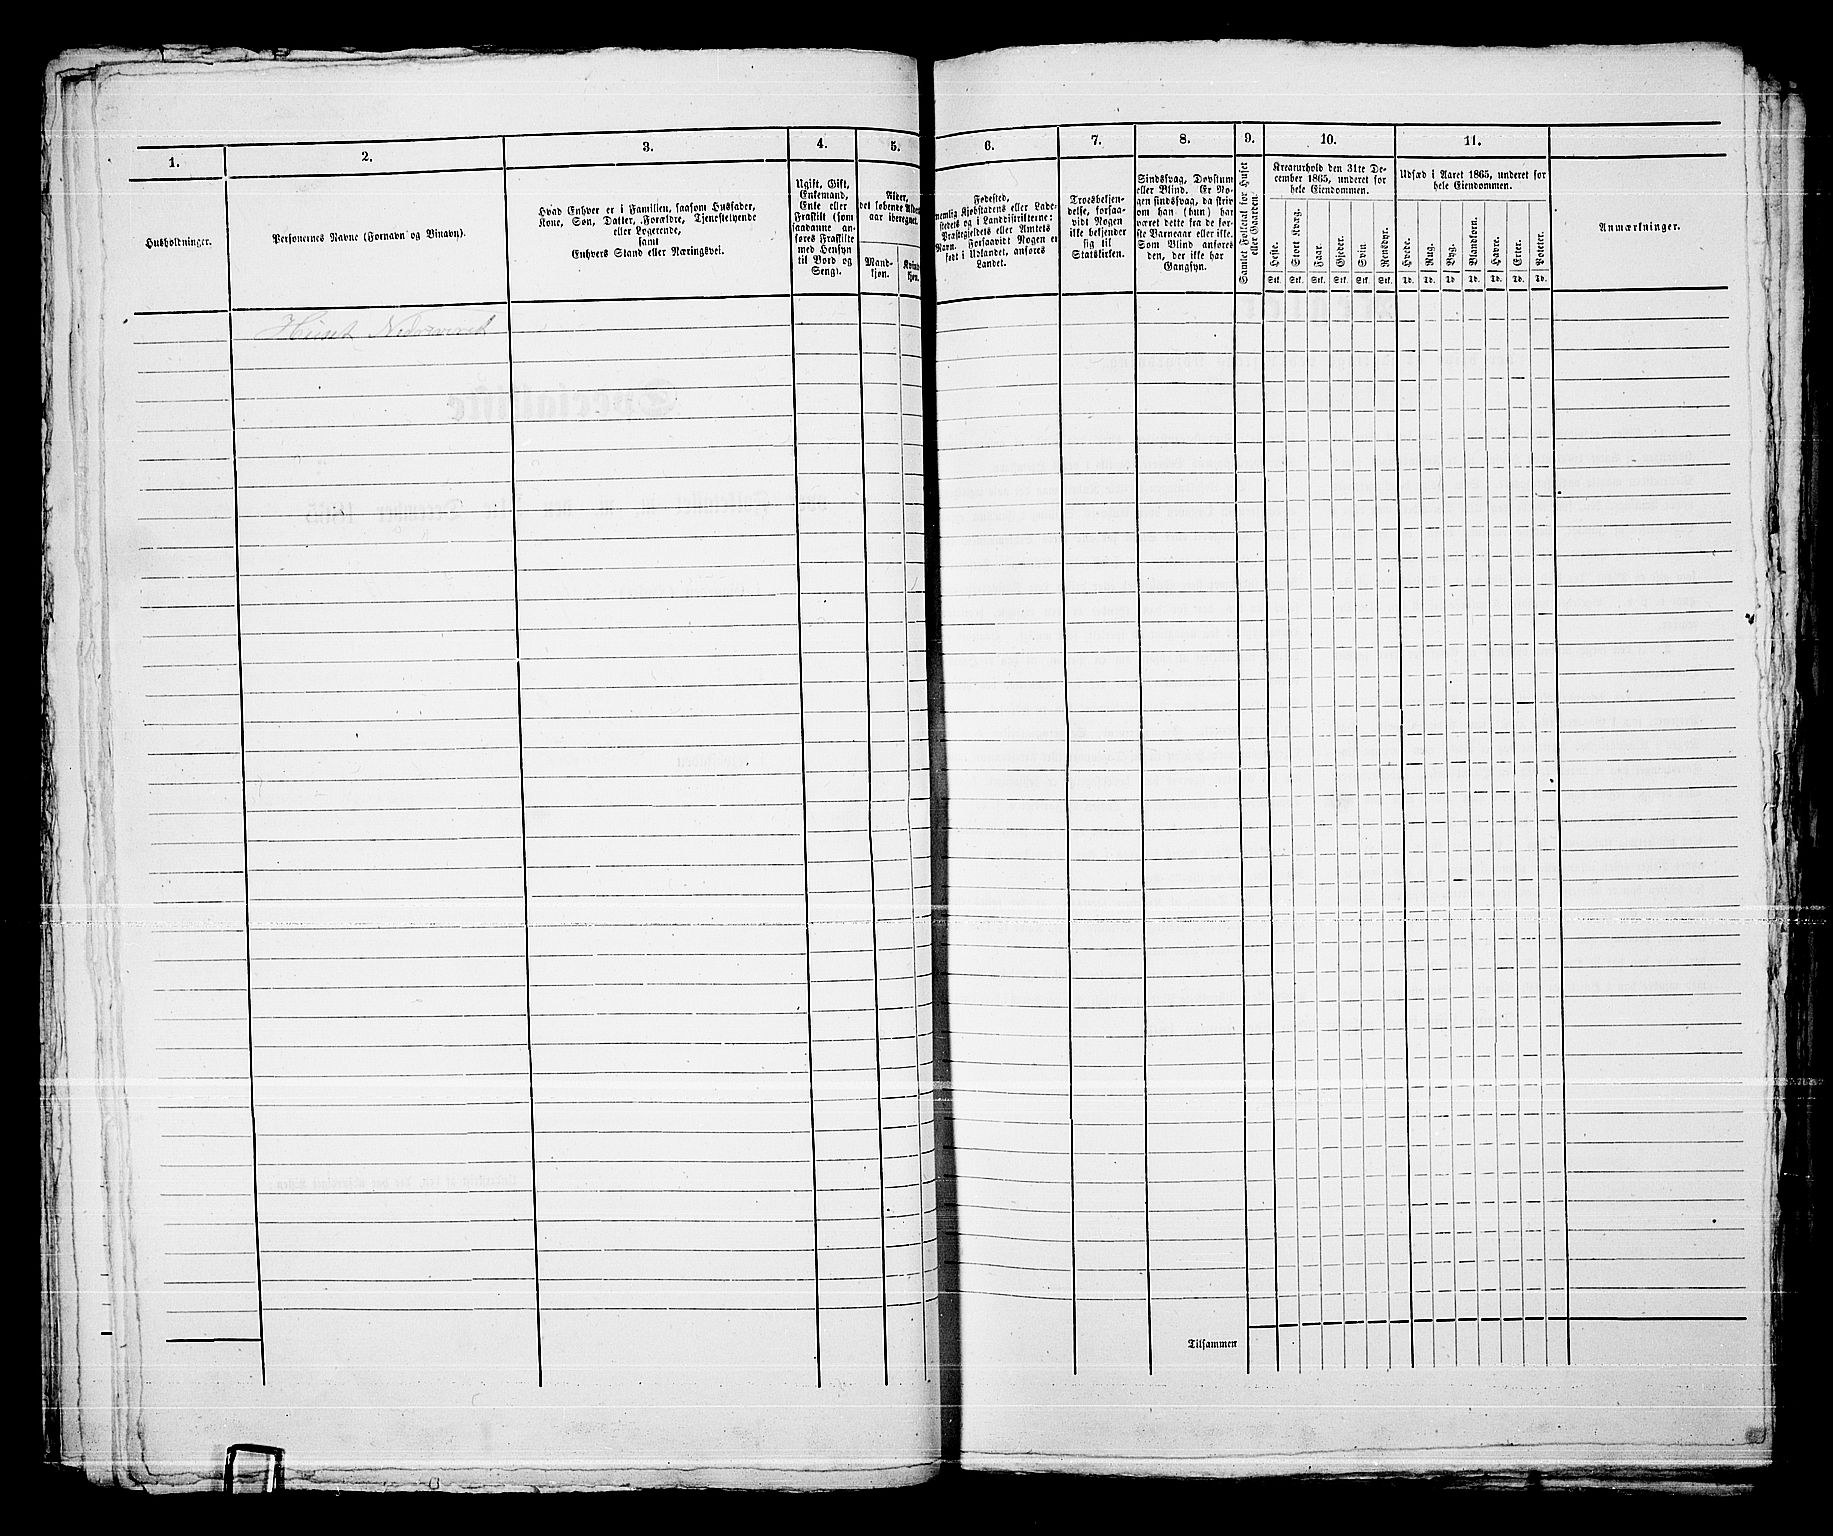 1.
Husholdninger.
2.
Personernes Navne (Fornavn og Binavn).
3.
Hvad Enhver er i Familien, saasom Husfader,
Kone, Søn, Datter, Forældre, Tjenestetyende
eller Logerende,
samt
Enhvers Stand eller Næringsvei.
4.
Ugift, Gift,
Enkemand,
Enke eller
Fraskilt (som
saadanne an-
føres Fraskilte
med Hensyn
til Bord og
Seng).
5.
Alder,
det løbende Alders-
aar iberegnet.
Mand-
kjøn.
Kvinde-
kjøn.
6.
Fødested,
nemlig Kjøbstadens eller Lade-
stedets og i Landdistrikterne:
Præstegjeldets eller Amtets
Navn. Forsaavidt Nogen er
født i Udlandet, anføres
Landet.
7.
Troesbekjen-
delse, forsaa-
vidt Nogen
ikke bekjender
sig til
Statskirken.
8.
Sindssvag, Døvstum
eller Blind. Er No-
gen sindssvag, da skriv
om han (hun) har
været dette fra de før-
ste Barneaar eller ikke.
Som Blind anføres
den, der ikke har
Gangsyn.
9.
Samlet Folketal for Huset
eller Gaarden.
10.
Kreaturhold den 31te De-
cember 1865, underet for
hele Eiendommen.
Heste.
Stort Kvæg.
Faar.
Gjeder.
Svin.
Rensdyr.
Stk. Stk. Stk. Stk. Stk. Stk.
11.
Udsæd i Aaret 1865, underet for
hele Eiendommen.
Hvede.
Rug.
Byg.
Blandkorn.
Havre.
Erter.
Poteter.
Td. Td. Td. Td. Td. Td. Td.
Anmærkninger.
Huset Nedrevet
Tilsammen